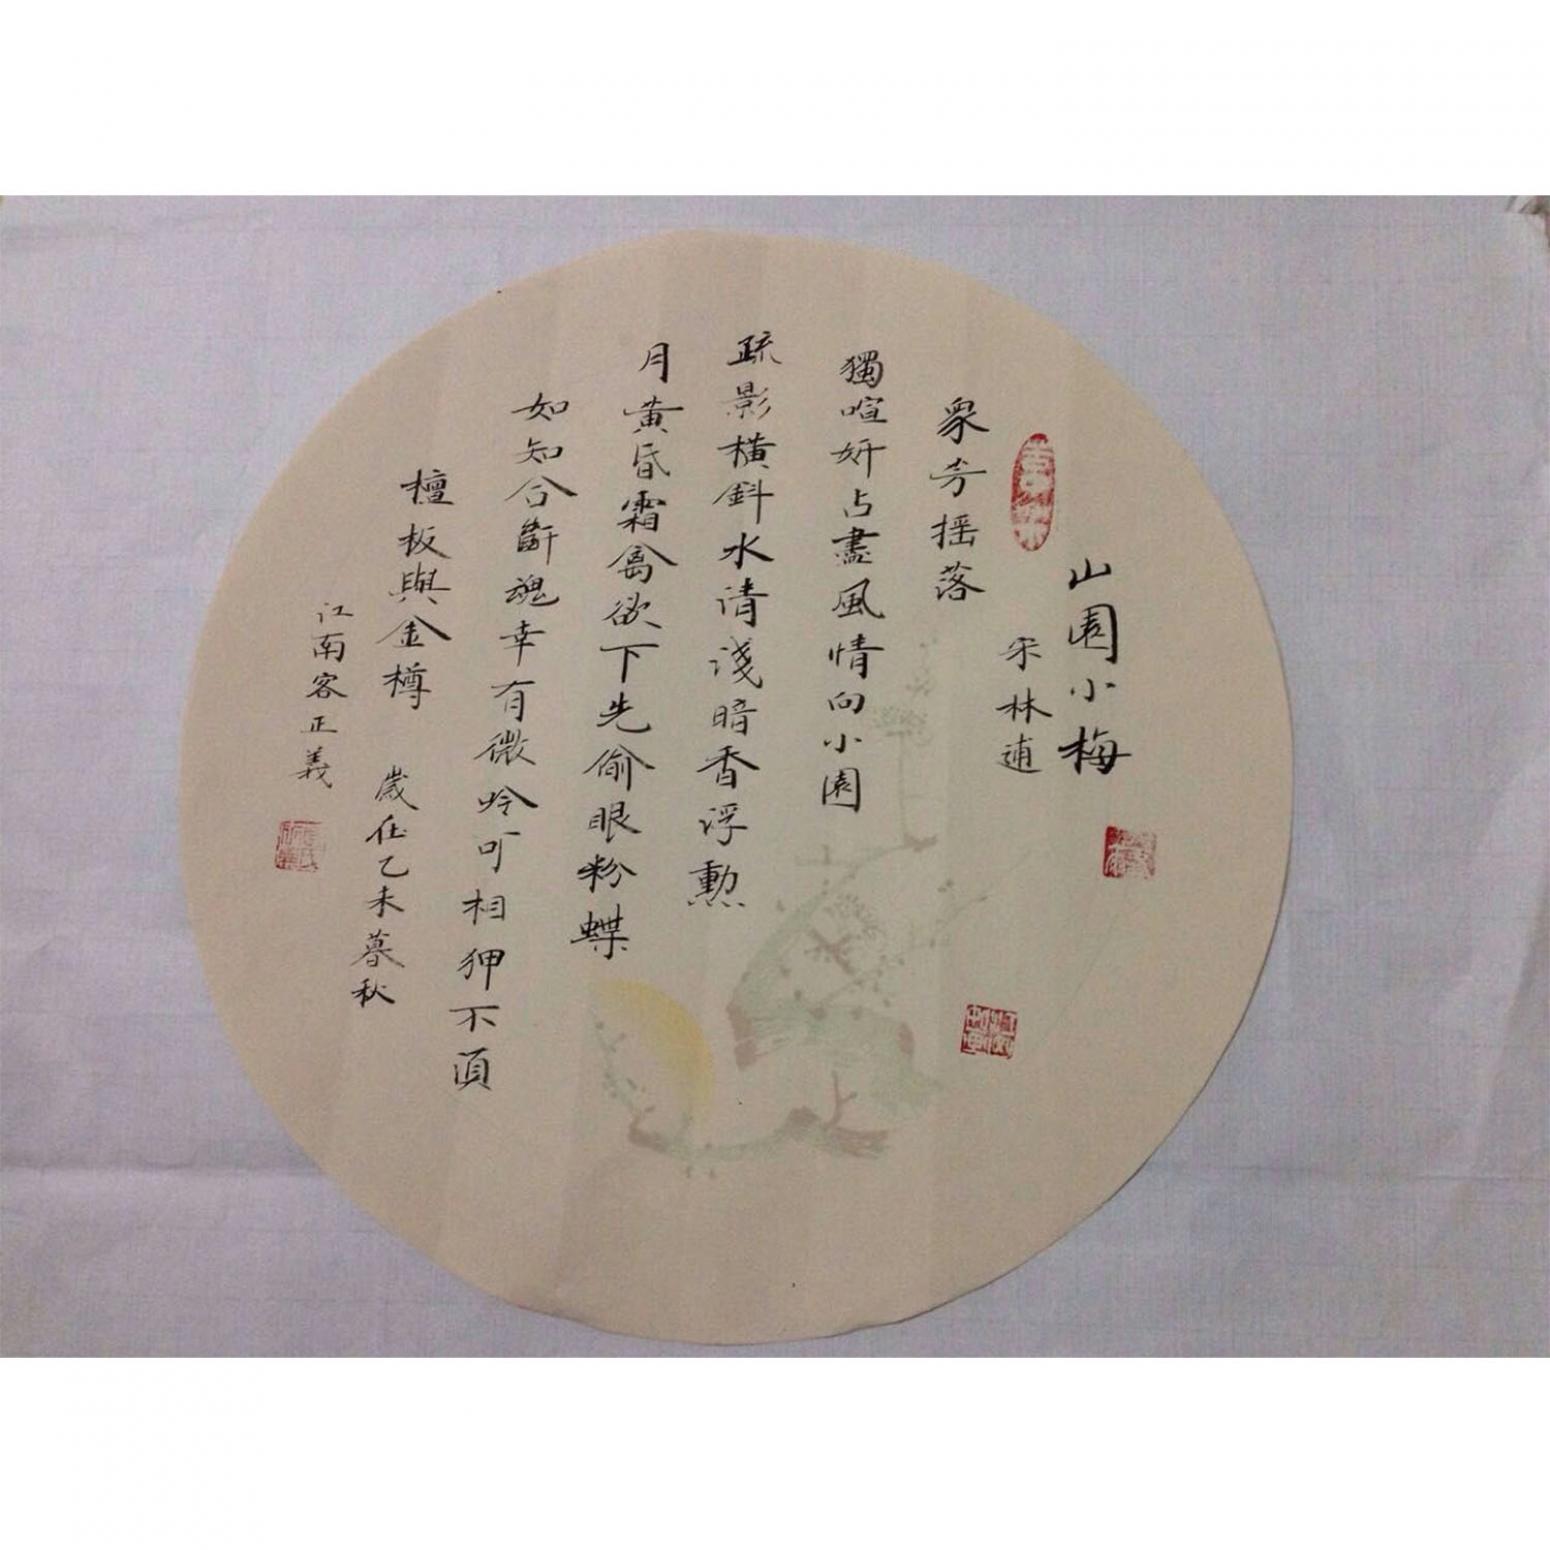 山園小梅
宋林逋
衆芳摇落
獨喧妍占盡風情向小園
疏影橫斜水清淺暗香浮勲
月黄昏霜禽欲下先偷眼粉蝶
如知合斷魂幸有微吟可相狎不須
檀板與金樽 歲在乙未暮秋
江南客正義